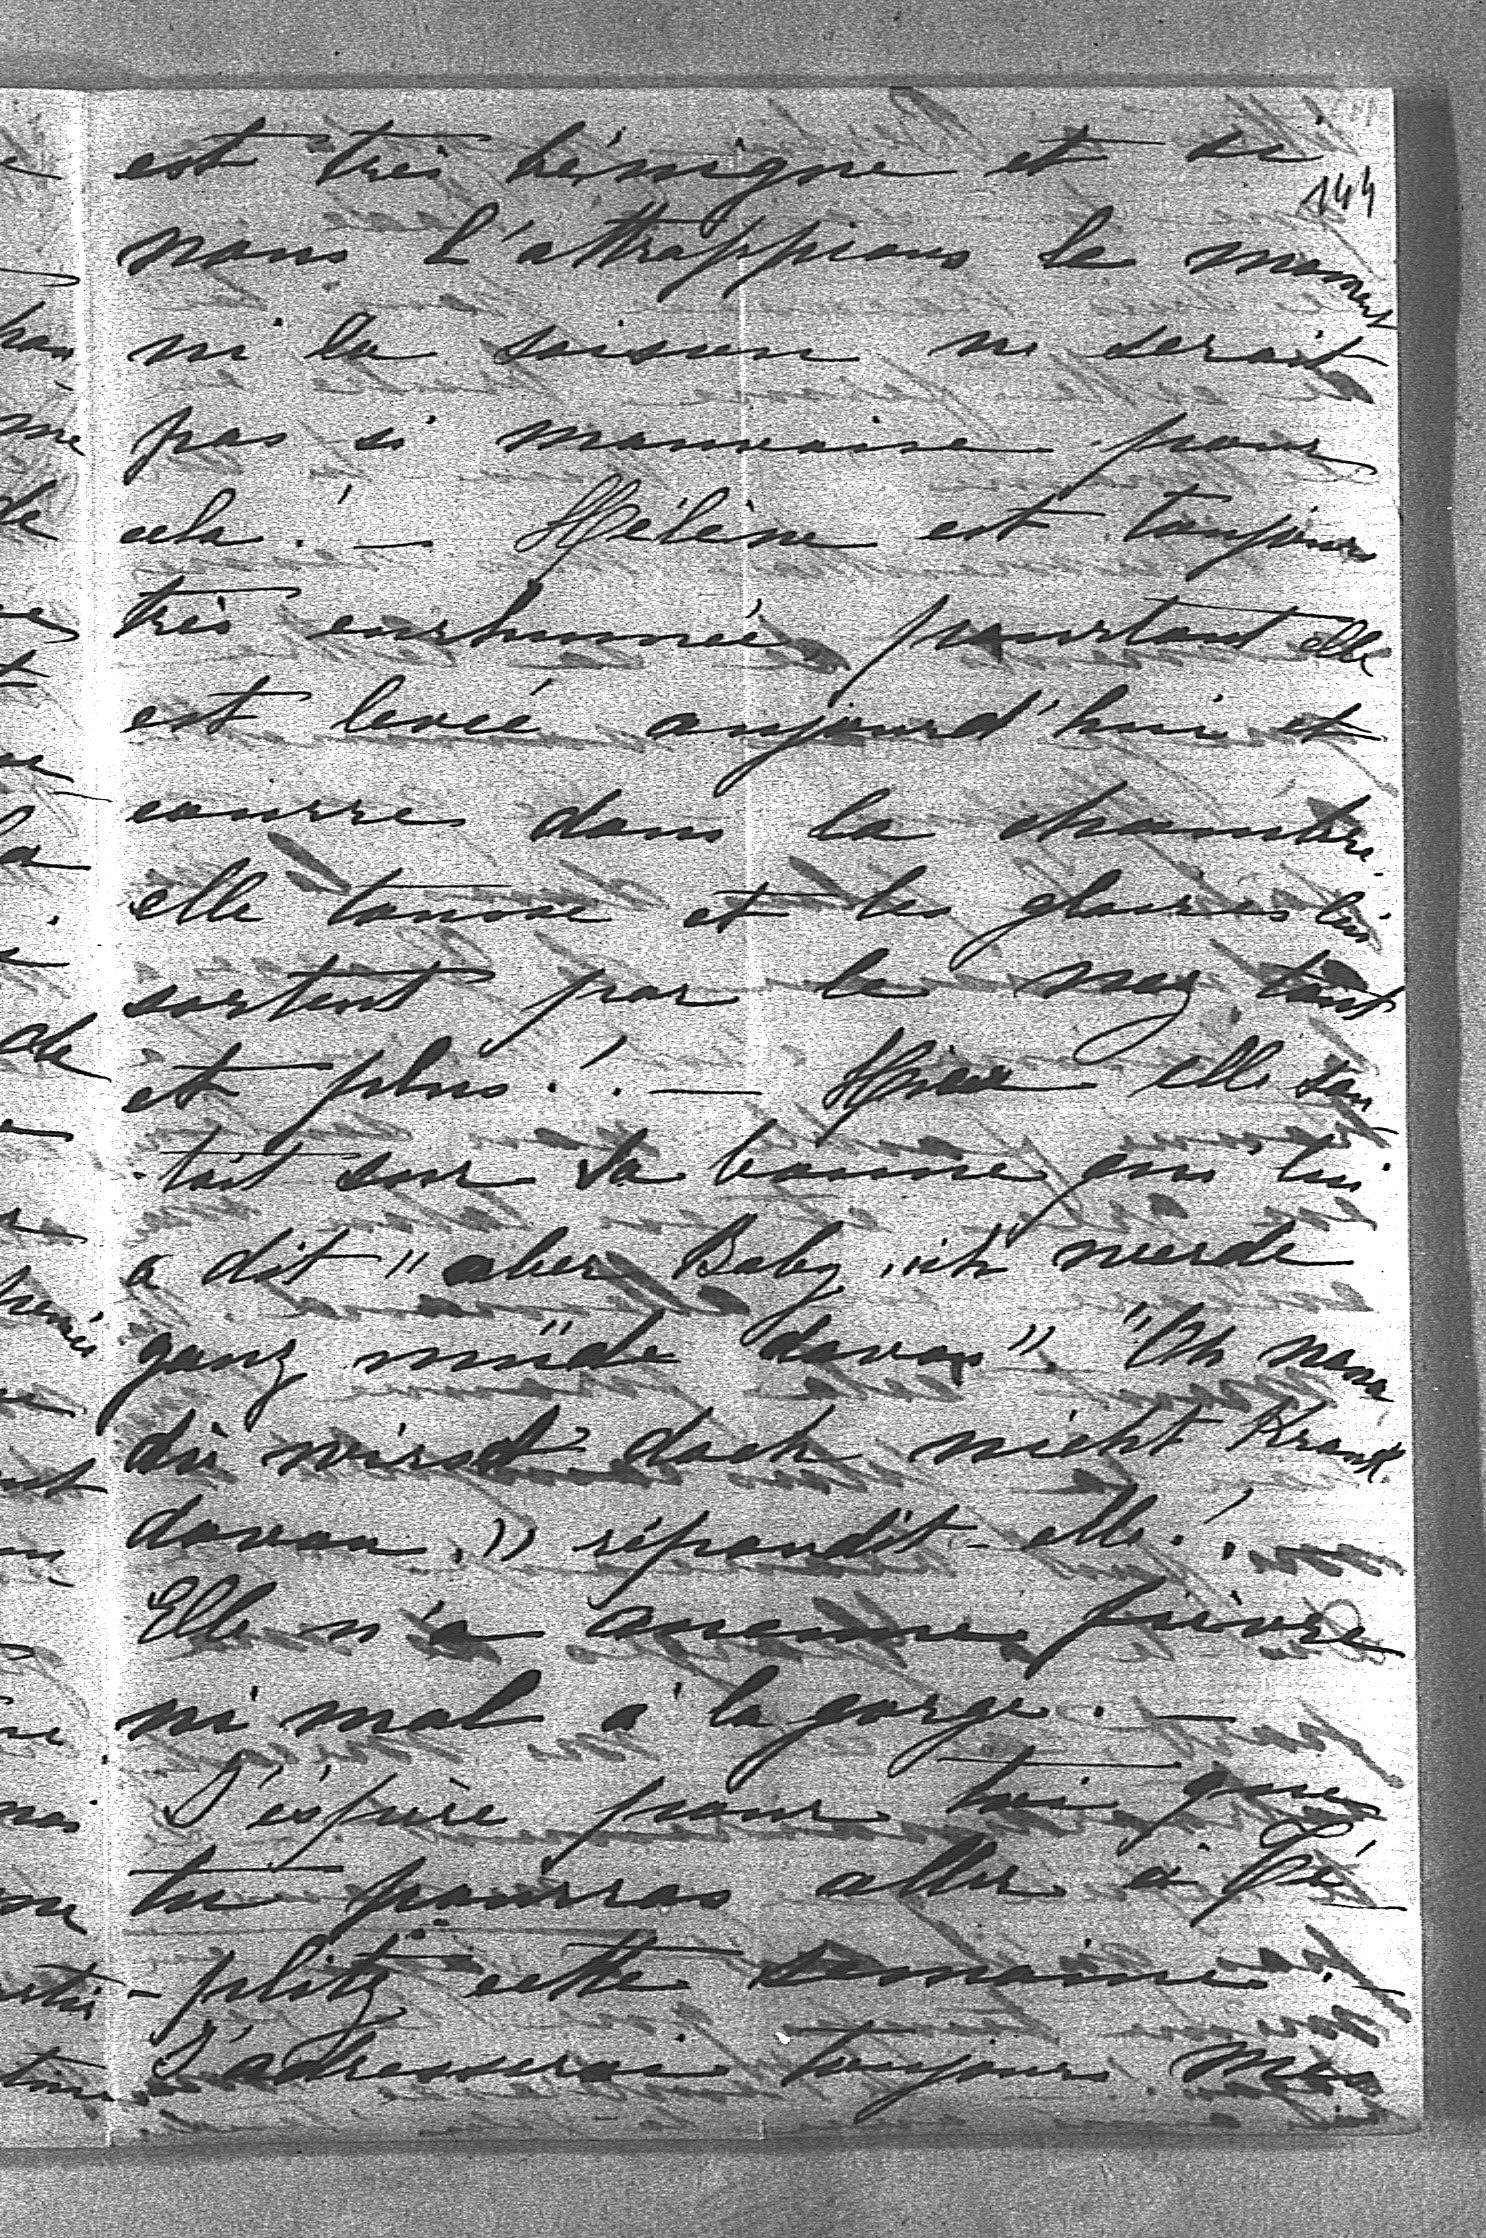 144
est très bénigne et si
nous l'attrappions le moment
ni la saison ne serait
pas si mauvaise pour
cela! — Hélène est toujours
très enrhumée pourtant elle
est levée aujourd'hui et
courre dans la chambre.
elle tousse et les glaires lui
sortent par le nez tant
et plus! — Hier elle sau
-tait sur sa bonne qui lui
a dit "aber Baby ich werde
ganz müde davon" "Oh nana
du wirst doch nicht krank
davon." répondit-elle!
Elle n'a aucune fièvre
ni mal à la gorge. —
J'éspère pour toi que
tu pourras aller à Té
-plitz cette semaine.
J'adresserai toujours mes